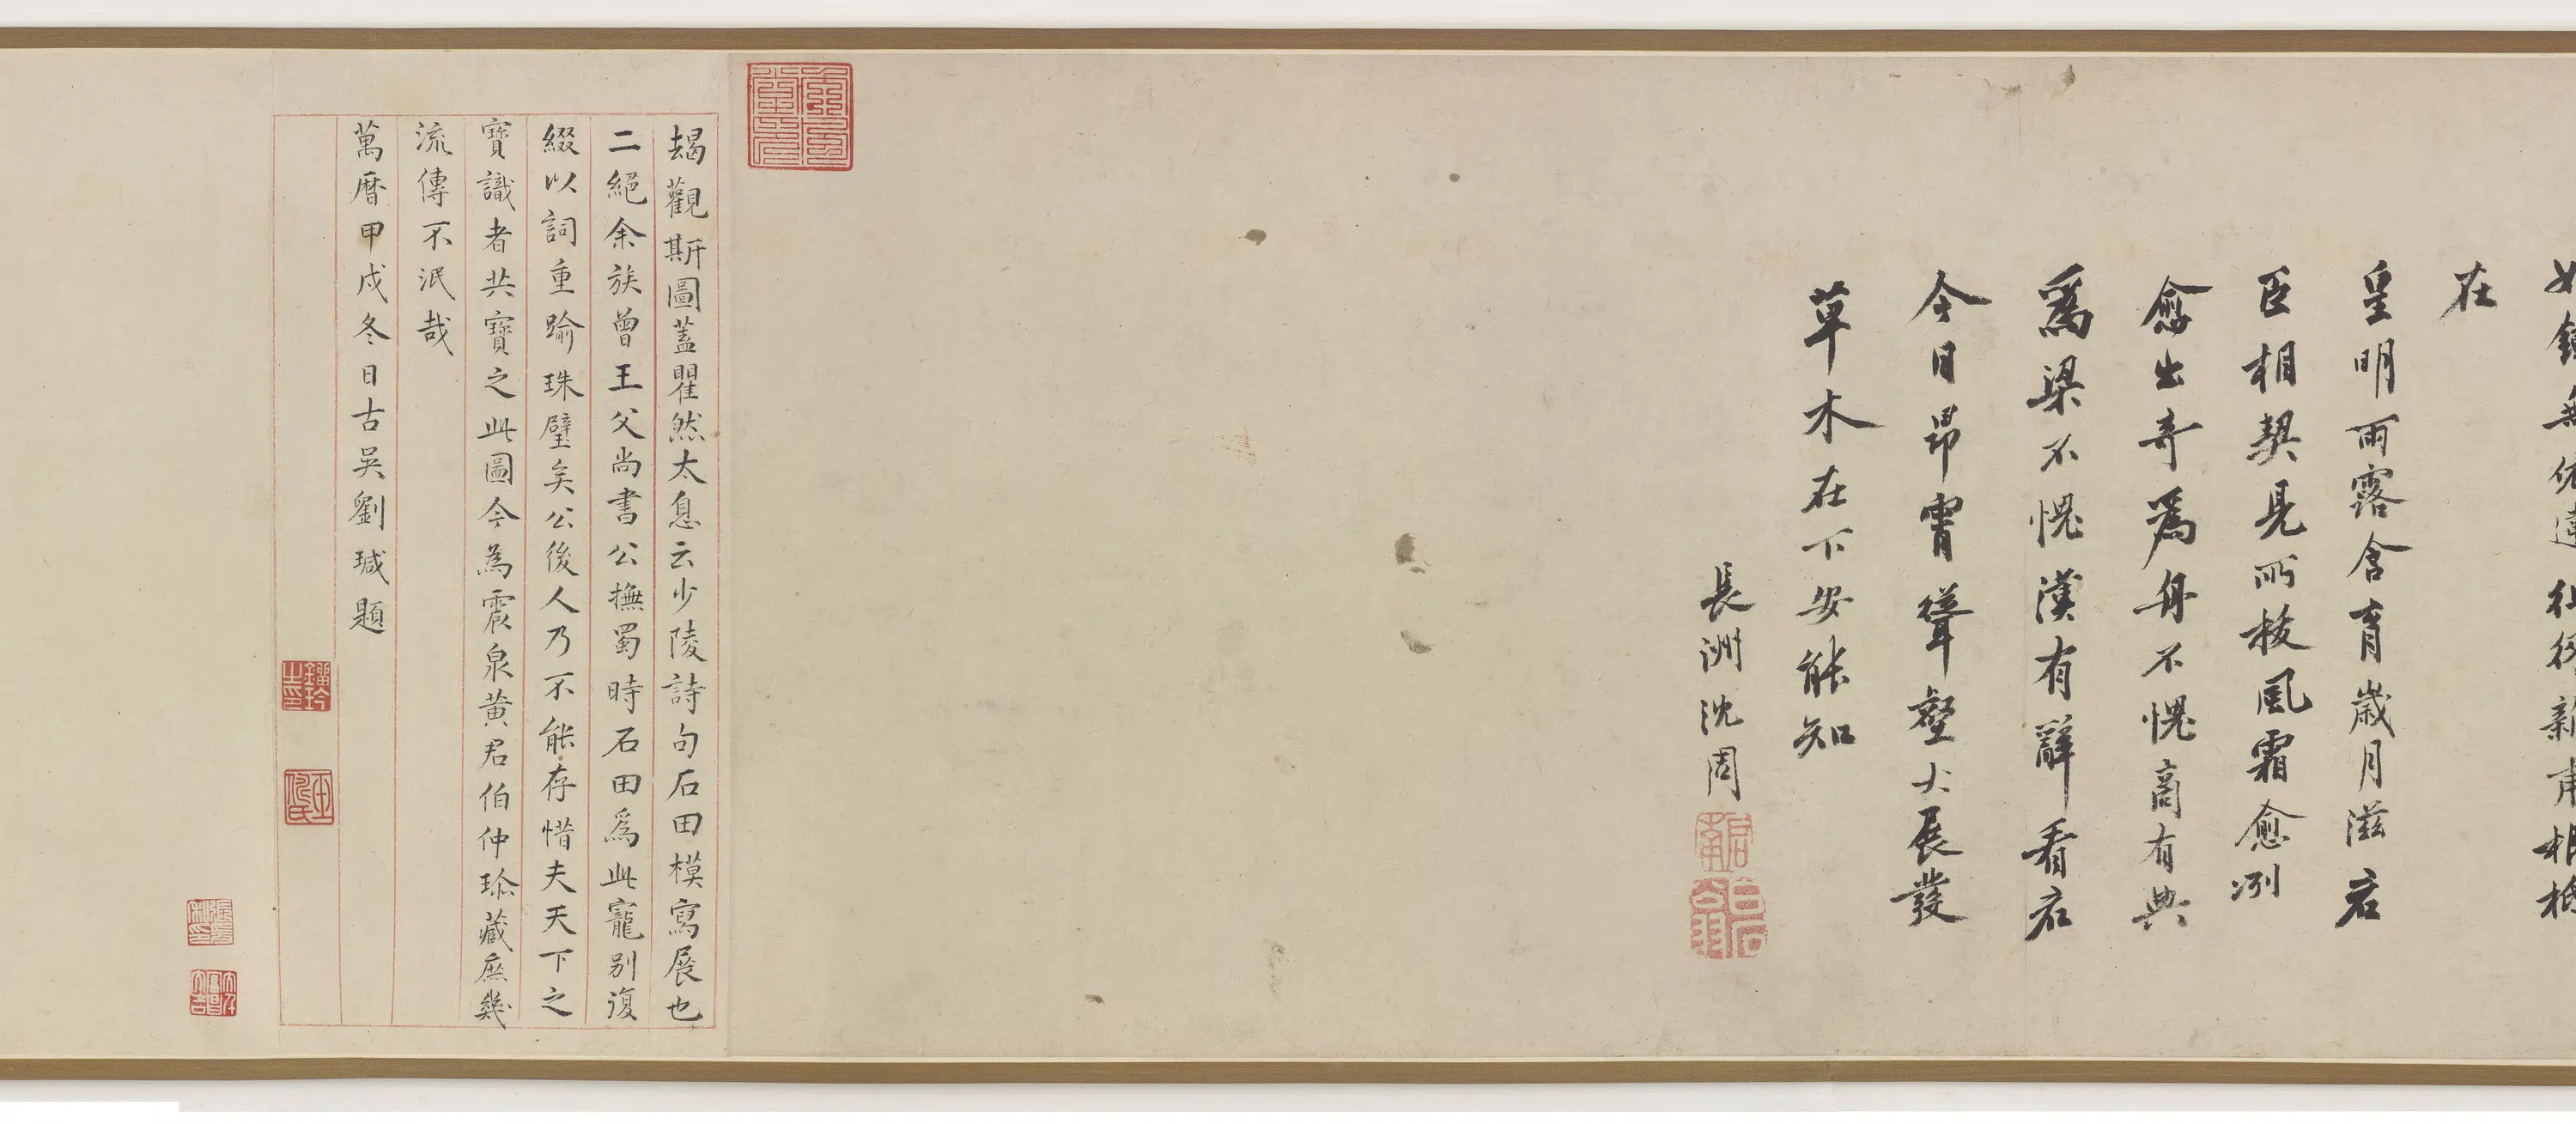 無依違徂徠新甫相
在
皇明雨露含育歲月滋君
臣相契見所拔風霜愈冽
愈出奇為身不愧高有典
為梁不愧漢有辭看君
今日昂霄聳壑大展發
草木在下安能知
長洲沈周
啟南
白石翁
朅觀斯圖蓋瞿然太息云少陵詩句石田模寫展也
二絕余族曾王父尚書公撫蜀時石田為此寵別復
綴以詞重踰珠璧矣公後人乃不能存惜夫天下之
寶識者共寶之此圖今為震泉黃君伯仲珍藏庶幾
流傳不泯哉
萬曆甲戌冬日古吳劉瑊題